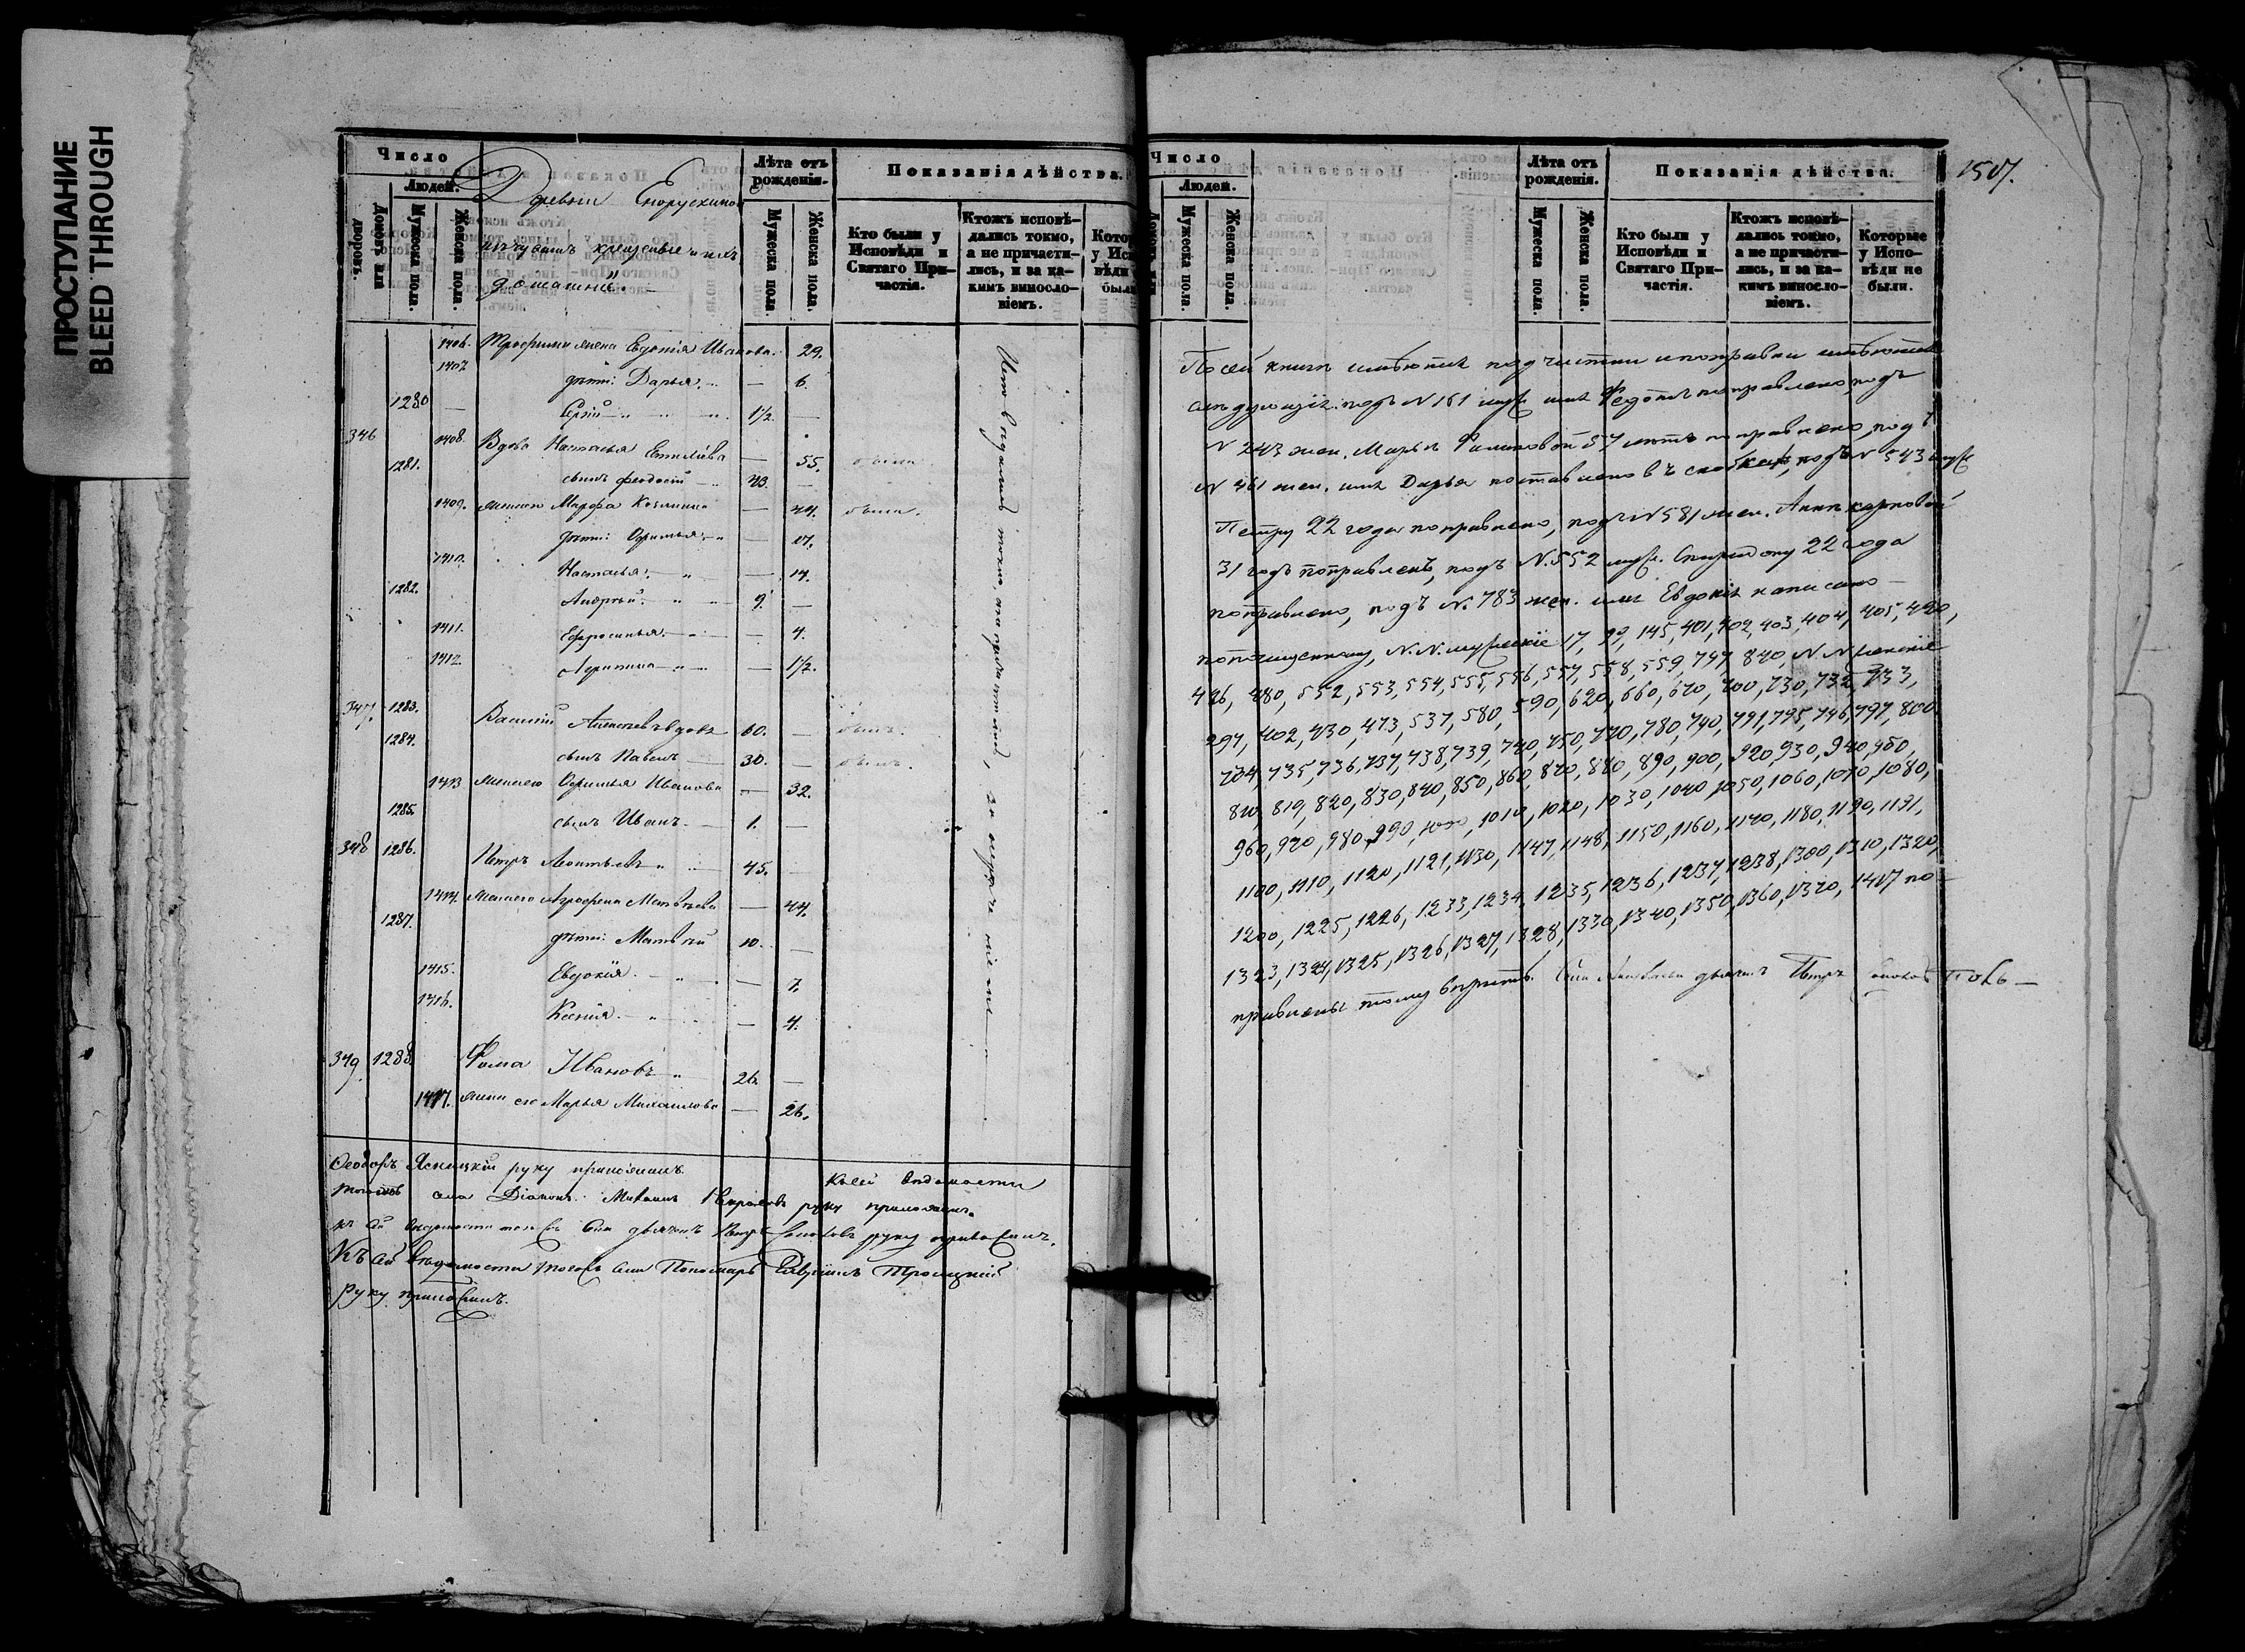 ПРОСТУПАНИЕ
BLEED THROUGH
Число
Людей.
Домовъ или дворовъ.
Мужеска пола.
Женска пола.
Деревни
крещеные и ихъ
домашніе.
Лѣта отъ рожденія.
Мужеска пола.
Женска пола.
Показанія дѣйства.
Кто были у Исповѣди и Святаго Причастія.
Ктожъ исповѣдались токмо, а не причастились, и за какимъ винословіемъ.
1406. Трофима жена Евдокія Иванова. 29.
1407 дѣти: Дарья — 6.
1280 — Сергій 1½. —
346 1408. Вдова Настасья — 55. была
1281. сынъ Феодосій 43. —
1409. жена его Марфа Козмина — 44. была.
дѣти: — 17.
1410. Настасья — 14.
1282. Андрей 9. —
1411. Ефросинья — 4.
1412. — 1½.
347. 1283. Василій вдовъ 60. — былъ.
1284. сынъ Павелъ 30. — былъ.
1413 жена его Иванова — 32.
1285. сынъ Иванъ 1. —
348 1286. Петръ Леонтьевъ 45. —
1414. жена его Агрофена Матвѣева — 44.
1287. дѣти: Матвѣй 10. —
1415. Евдокія — 7.
1416. Ксенія — 4.
349. 1288. Фома Ивановъ 26. —
1417. жена его Марья Михаилова — 26.
Феодоръ Ясницкій руку приложилъ. Къ сей ведомости
тогожъ села Діаконъ Михаилъ руку приложилъ.
къ сей ведомости тогожъ села дьячекъ Петръ руку приложилъ.
Къ сей вѣдомости тогожъ села Пономарь Гавріилъ Троицкій
руку приложилъ.
Число
Людей.
Мужеска пола.
Женска пола.
Лѣта отъ рожденія.
Мужеска пола.
Женска пола.
Показанія дѣйства.
Кто были у Исповѣди и Святаго Причастія.
Ктожъ исповѣдались токмо, а не причастились, и за какимъ винословіемъ.
Которые у Исповѣди не были.
1507.
По сей книгѣ имѣются подчистки и поправки имѣются
слѣдующія: подъ N 161 муж. имя Федотъ поправлено, подъ
N 243 жен. Марьѣ 57 лѣтъ поправлено, подъ
N 461 жен. имя Дарья поставлено въ скобкахъ, подъ N 543 муж
Петру 22 года поправлено, подъ N 581 жен. Аннѣ Карповой
31 годъ поправленъ, подъ N. 552 муж. Спиридону 22 года
поправлено, подъ N. 783 жен. имя Евдокія написано
по N.N. мужескіе 17, 99, 145, 401, 402, 403, 404, 405, 420,
426, 480, 552, 553, 554, 555, 556, 557, 558, 559, 747, 840, N.N. женскіе
297, 402, 430, 473, 537, 580, 590, 620, 660, 670, 700, 730, 732, 733,
734, 735, 736, 737, 738, 739, 740, 750, 770, 780, 790, 791, 795, 796, 797, 800,
810, 819, 820, 830, 840, 850, 860, 870, 880, 890, 900, 920, 930, 940, 950,
960, 970, 980, 990, 1000, 1010, 1020, 1030, 1040, 1050, 1060, 1070, 1080,
1100, 1110, 1120, 1121, 1130, 1147, 1148, 1150, 1160, 1170, 1180, 1190, 1191,
1200, 1225, 1226, 1233, 1234, 1235, 1236, 1237, 1238, 1300, 1310, 1320,
1323, 1324, 1325, 1326, 1327, 1328, 1330, 1340, 1350, 1360, 1370, 1417 по-
правлены тому вѣрить. дьячекъ Петръ